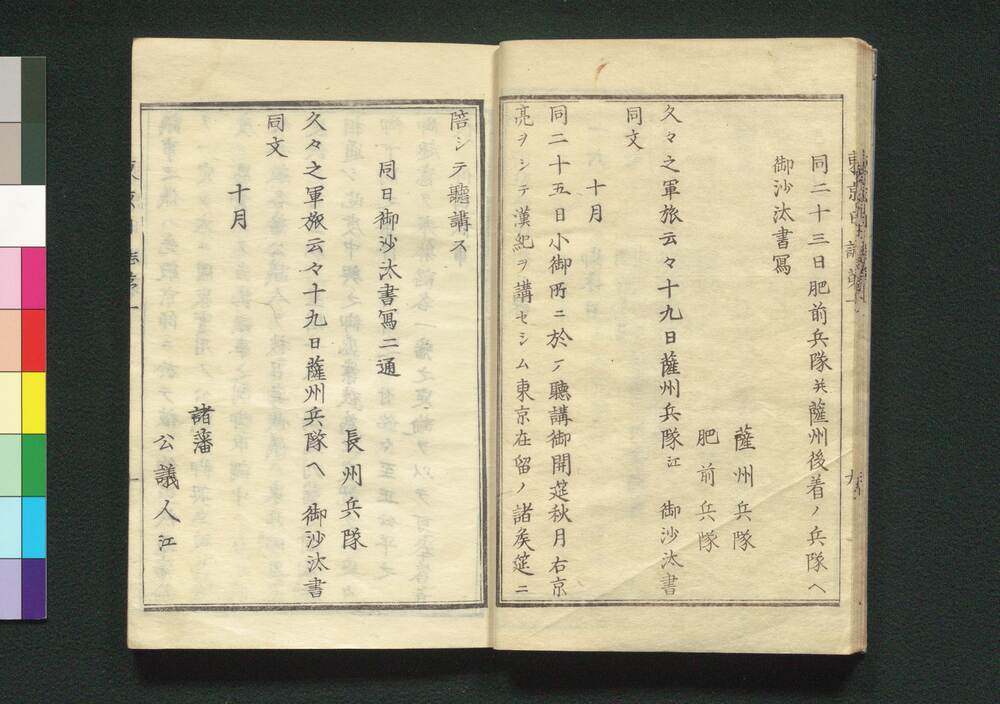 同二十三日肥前兵隊共薩州後着ノ兵隊ヘ
御沙汰書寫
薩州兵隊
肥前兵隊
久々之軍旅云々十九日薩州兵隊江 御沙汰書
同文
十月
同二十五日小御所ニ於テ聽講御開筵秋月右京
亮ヲシテ漢紀ヲ講セシム東京在留ノ諸矦筵ニ
陪シテ聽講ス
同日御沙汰書寫二通
長州兵隊
久々之軍旅云々十九日薩州兵隊ヘ 御沙汰書
同文
十月
諸藩
公議人江